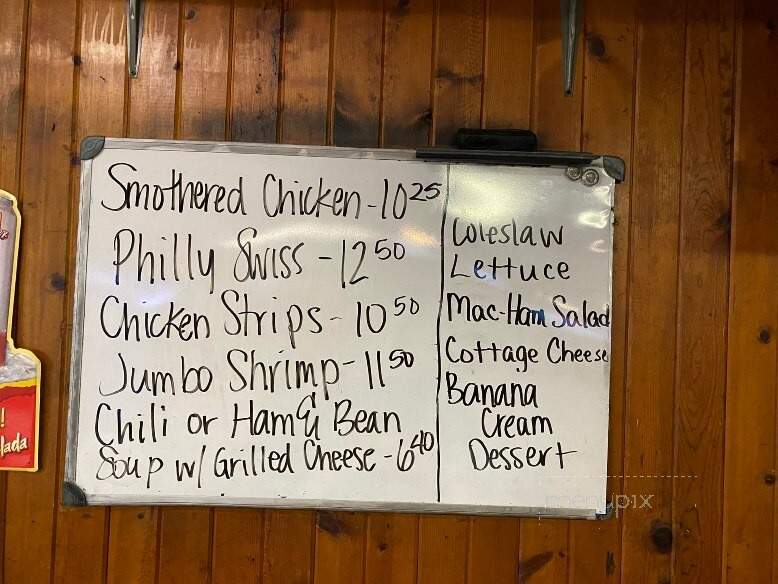 Smothered Chicken - 10 25
Philly Swiss - 12 50
Chicken Strips - 10 50
Jumbo Shrimp - 11 50
Chili or Ham & Bean
Soup w/ Grilled Cheese - 6 40
Coleslaw
Lettuce
Mac-Ham Salad
Cottage Cheese
Banana
Cream
Dessert
!
lada
menupix